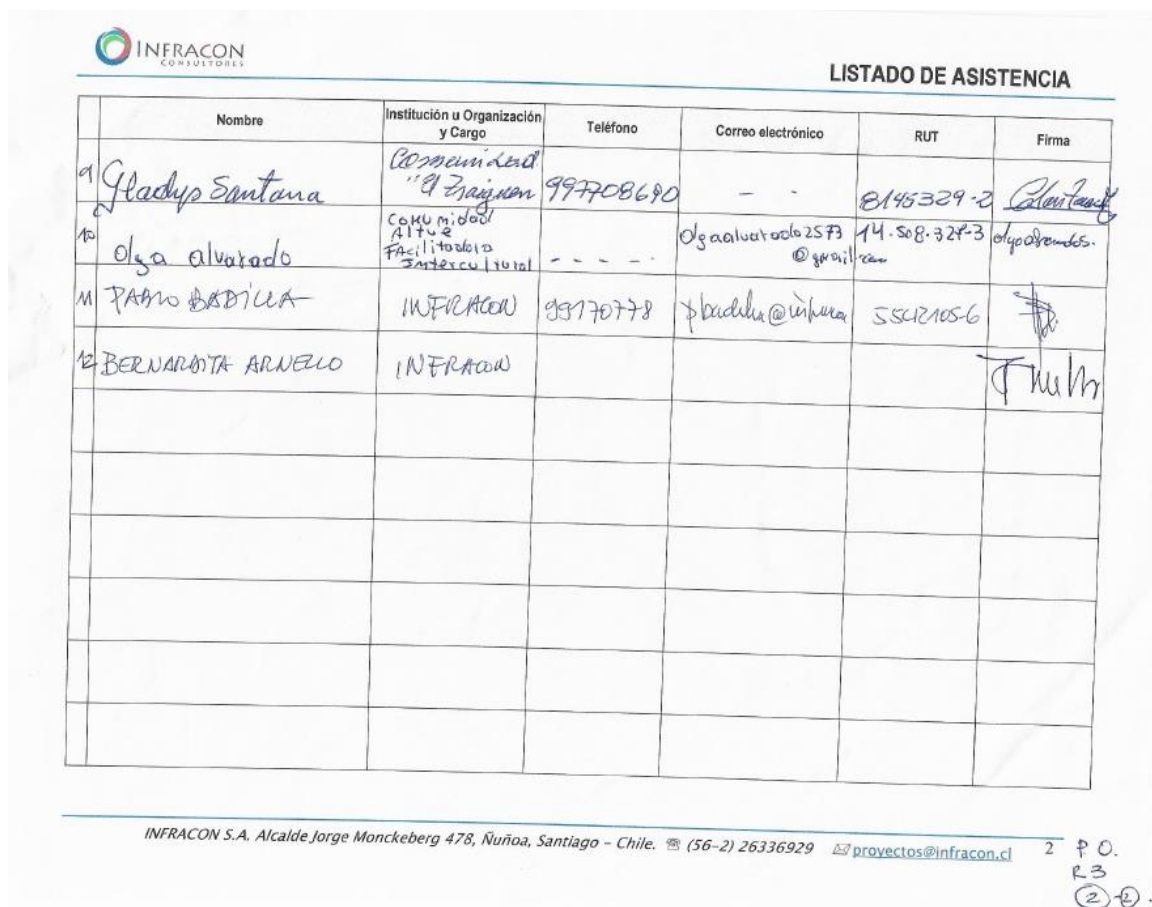 INFRACON
CONSULTORES
LISTADO DE ASISTENCIA
Nombre
Institución u Organización
y Cargo
Teléfono
Correo electrónico
RUT
Firma
9
Gladys Santana
Comunidad
"El Traiguen
997708690
- -
8145329-2
10
Olga alvarado
Comunidad
Altue
FAcilitadora
Intercultural
- - - - -
Olgaalvarado2573
@gmail.com
14.508.327-3
11
PABLO BADILLA
INFRACON
99170778
12
BERNARDITA ARNELLO
INFRACON
INFRACON S.A. Alcalde Jorge Monckeberg 478, Ñuñoa, Santiago – Chile. ☏ (56-2) 26336929 ✉ proyectos@infracon.cl
2
P.O.
R3
2-2.